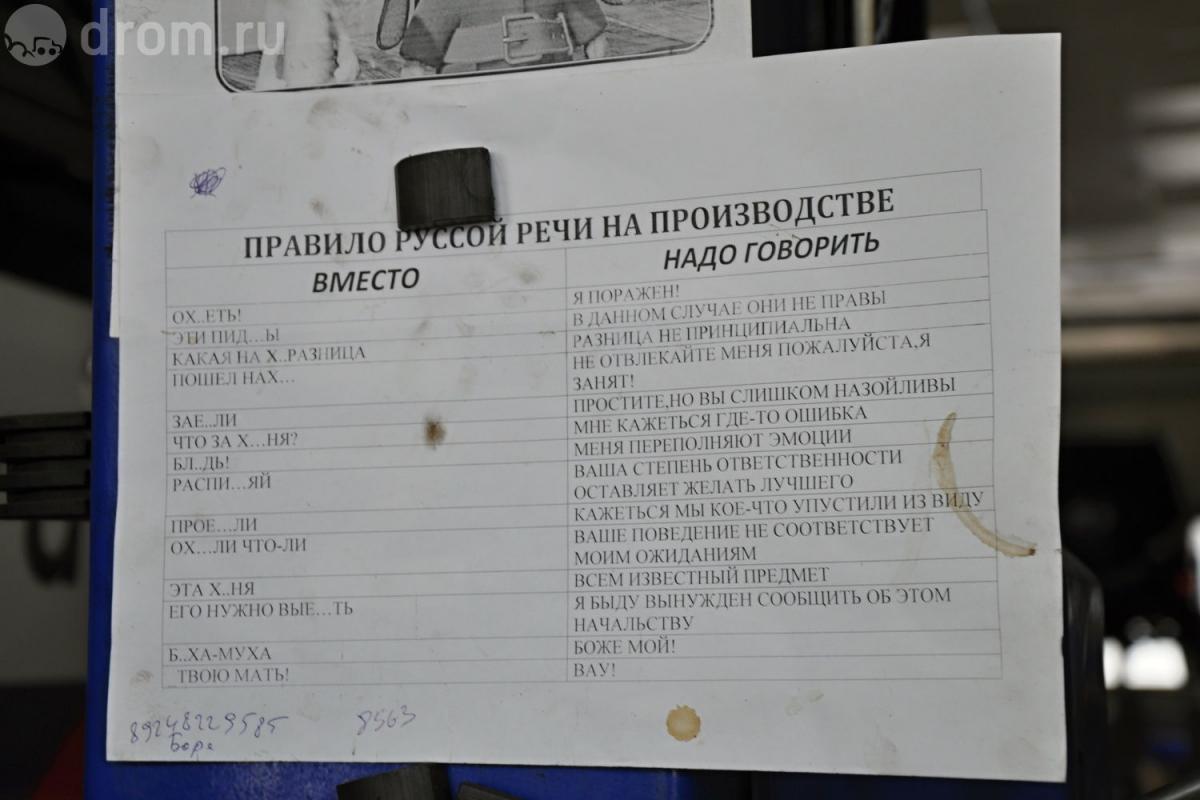 drom.ru
ПРАВИЛО РУССОЙ РЕЧИ НА ПРОИЗВОДСТВЕ
ВМЕСТО НАДО ГОВОРИТЬ
ОХ..ЕТЬ! Я ПОРАЖЕН!
ЭТИ ПИД...Ы В ДАННОМ СЛУЧАЕ ОНИ НЕ ПРАВЫ
КАКАЯ НА Х..РАЗНИЦА РАЗНИЦА НЕ ПРИНЦИПИАЛЬНА
ПОШЕЛ НАХ... НЕ ОТВЛЕКАЙТЕ МЕНЯ ПОЖАЛУЙСТА,Я
ЗАНЯТ!
ЗАЕ..ЛИ ПРОСТИТЕ,НО ВЫ СЛИШКОМ НАЗОЙЛИВЫ
ЧТО ЗА Х...НЯ? МНЕ КАЖЕТЬСЯ ГДЕ-ТО ОШИБКА
БЛ..ДЬ! МЕНЯ ПЕРЕПОЛНЯЮТ ЭМОЦИИ
РАСПИ...ЯЙ ВАША СТЕПЕНЬ ОТВЕТСТВЕННОСТИ
ОСТАВЛЯЕТ ЖЕЛАТЬ ЛУЧШЕГО
ПРОЕ...ЛИ КАЖЕТЬСЯ МЫ КОЕ-ЧТО УПУСТИЛИ ИЗ ВИДУ
ОХ...ЛИ ЧТО-ЛИ ВАШЕ ПОВЕДЕНИЕ НЕ СООТВЕТСТВУЕТ
МОИМ ОЖИДАНИЯМ
ЭТА Х..НЯ ВСЕМ ИЗВЕСТНЫЙ ПРЕДМЕТ
ЕГО НУЖНО ВЫЕ...ТЬ Я БЫДУ ВЫНУЖДЕН СООБЩИТЬ ОБ ЭТОМ
НАЧАЛЬСТВУ
Б..ХА-МУХА БОЖЕ МОЙ!
_ТВОЮ МАТЬ! ВАУ!
89248229585 8563
Боре